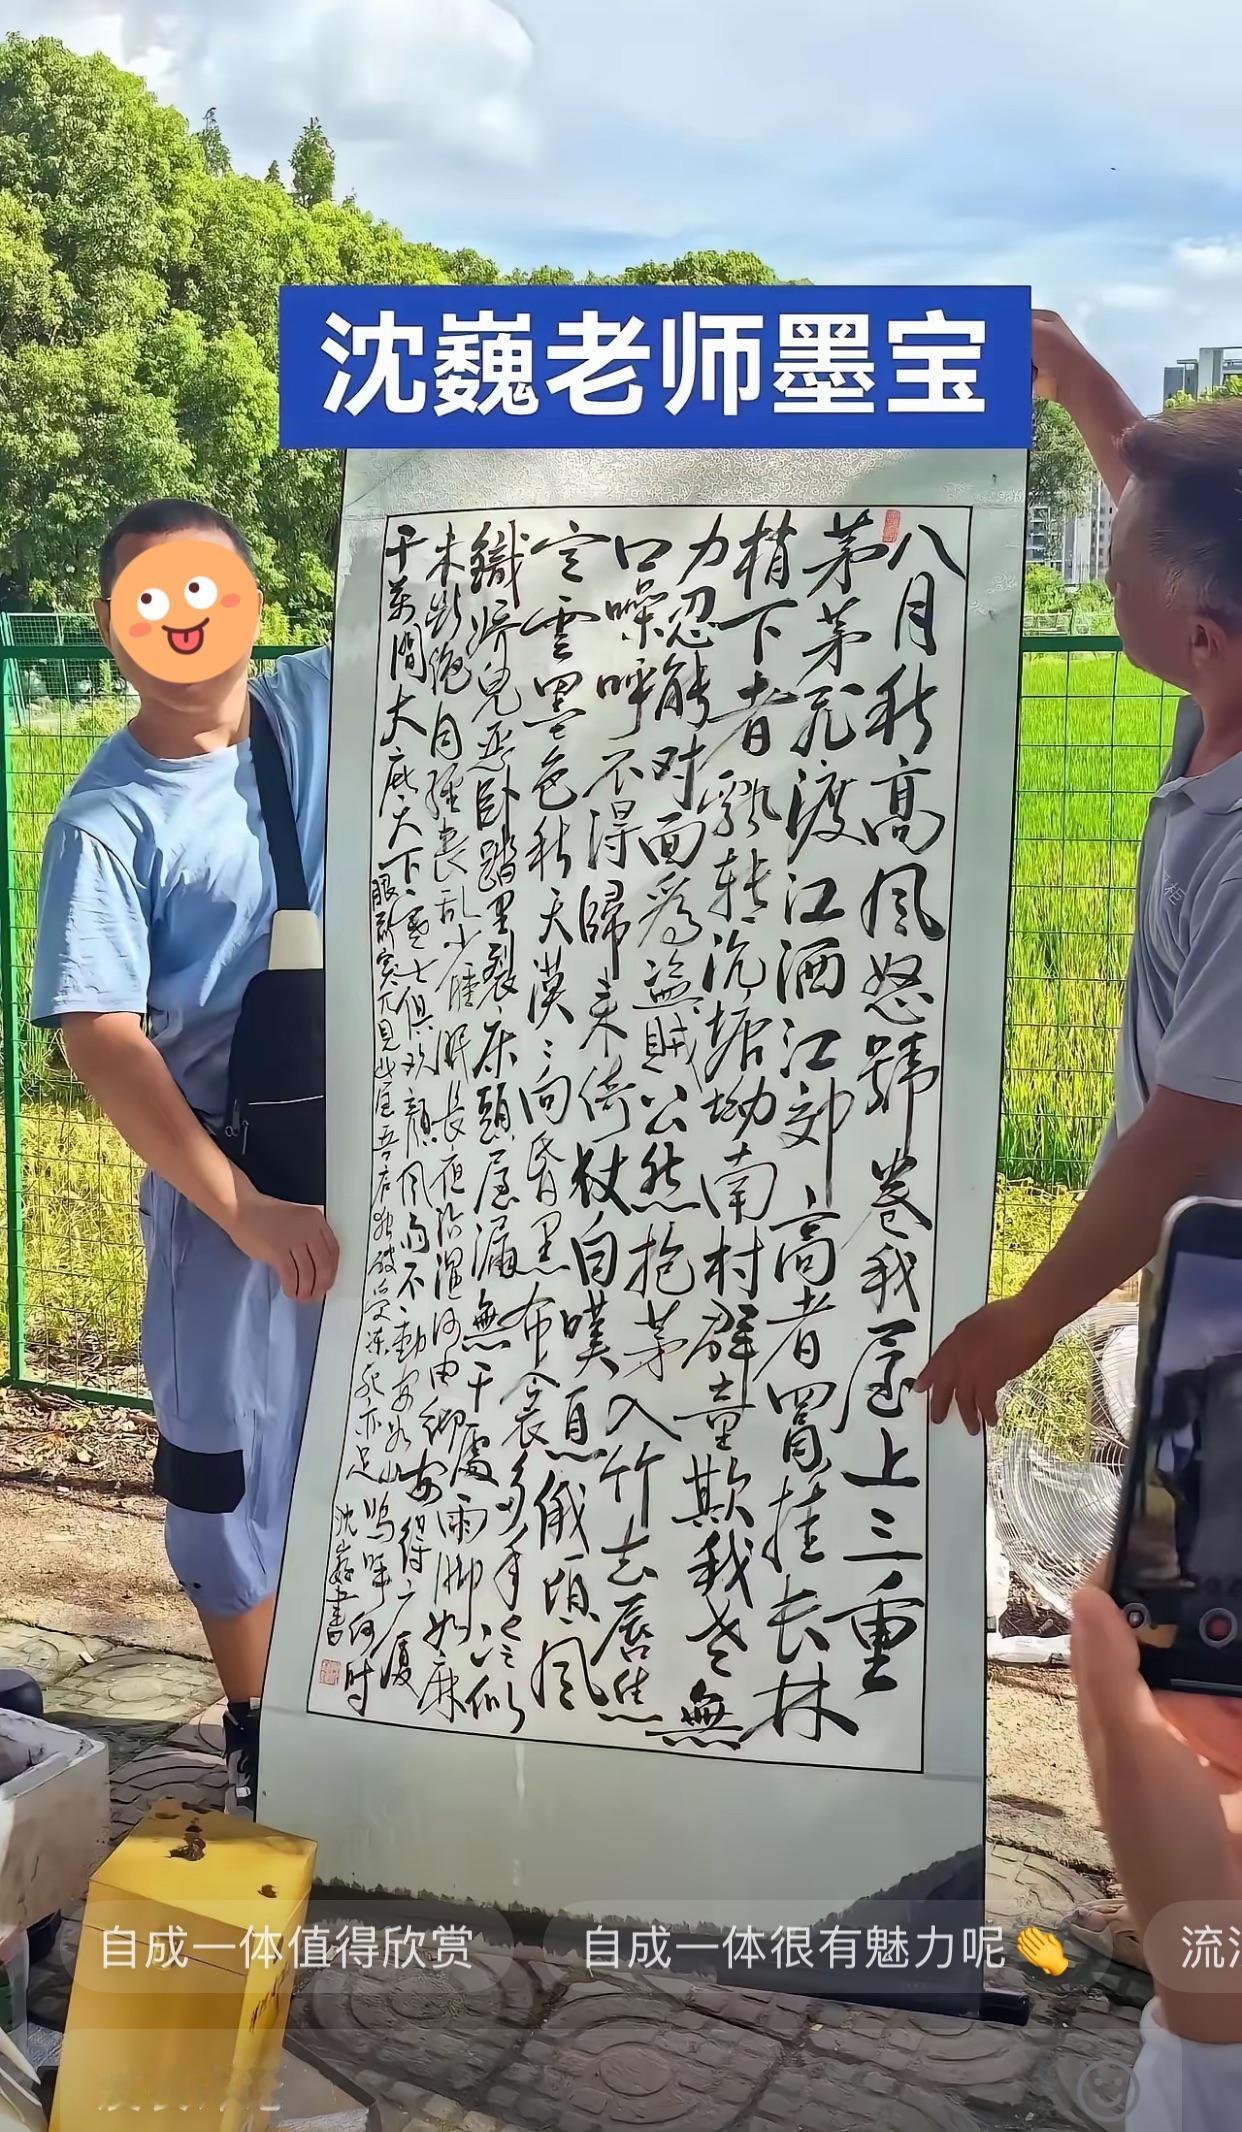 沈巍老师墨宝
八月秋高風怒號卷我屋上三重
茅茅飛渡江洒江郊高者罥挂長林
梢下者飄轉沉塘坳南村群童欺我老無
力忍能对面為盜賊公然抱茅入竹去唇焦
口噪呼不得歸来倚杖自嘆息俄頃風
定雲墨色秋天漠〻向昏黑布衾多年冷似
鐵娇兒恶卧踏里裂床頭屋漏無干處雨脚如麻
未断绝自經丧乱少睡眠長夜沾湿何由徹安得广厦
千萬間大庇天下寒士俱欢顏風雨不動安如山嗚呼何时
眼前突兀見此屋吾庐独破受冻死亦足
沈巍書
自成一体值得欣赏
自成一体很有魅力呢👏